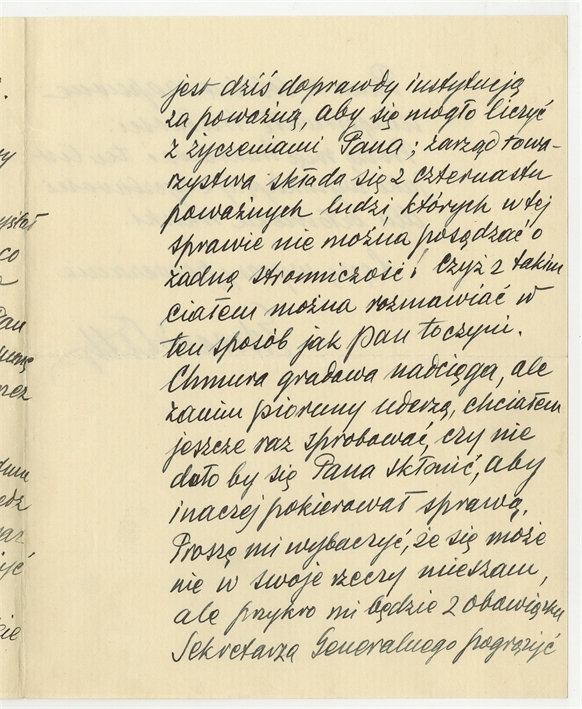 jest dziś doprawdy instytucją
za poważną, aby się mogło liczyć
z życzeniami Pana; zarząd towa-
rzystwa składa się z czternastu
poważnych ludzi których w tej
sprawie nie można posądzać o
żadną stronniczość! Czyż z takim
ciałem można rozmawiać w
ten sposób jak Pan to czyni.
Chmura gradowa nadciąga, ale
zanim pioruny uderzą, chciałem
jeszcze raz spróbować, czy nie
dało by się Pana skłonić, aby
inaczej pokierował sprawą.
Proszę mi wybaczyć, że się może
nie w swoje rzeczy mieszam,
ale przykro mi będzie z obowiązku
Sekretarza Generalnego pogrążyć